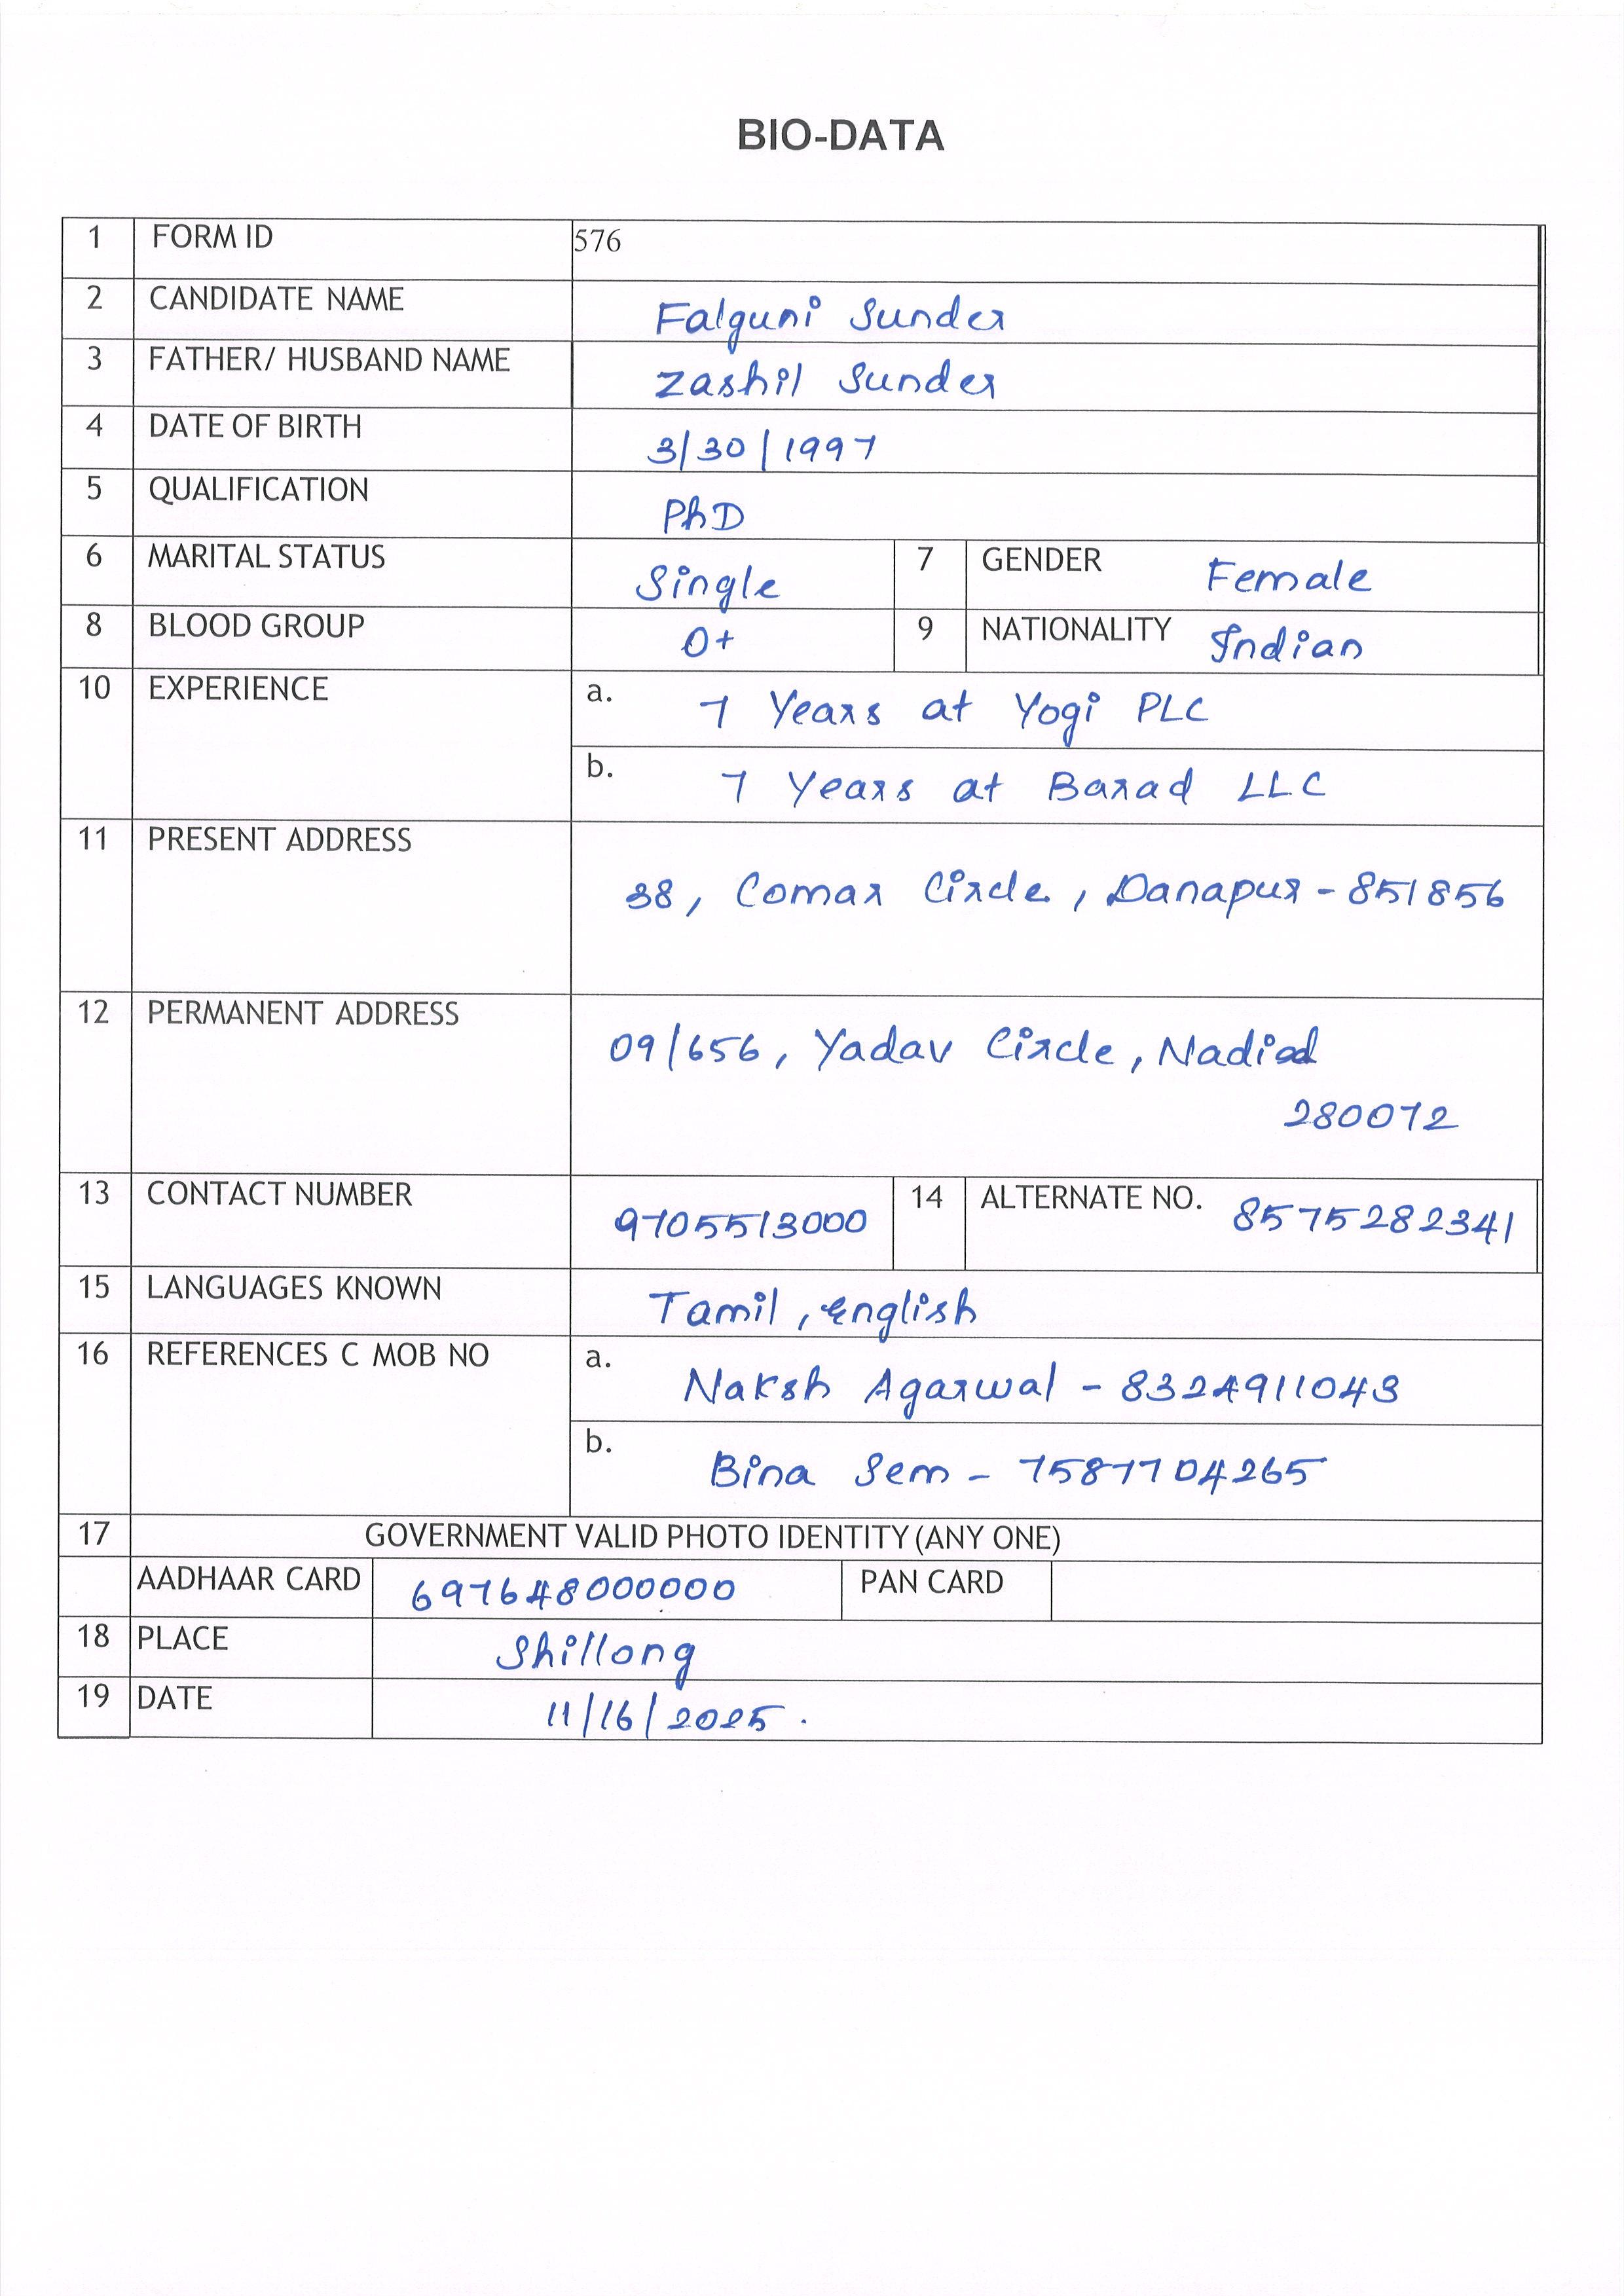 BIO-DATA
1 FORM ID 576
2 CANDIDATE NAME Falguni Sunder
3 FATHER/ HUSBAND NAME Zashil Sunder
4 DATE OF BIRTH 3/30/1997
5 QUALIFICATION PhD
6 MARITAL STATUS Single 7 GENDER Female
8 BLOOD GROUP O+ 9 NATIONALITY Indian
10 EXPERIENCE a. 7 Years at Yogi PLC
b. 7 Years at Barad LLC
11 PRESENT ADDRESS 38, Comar Circle, Danapur - 851856
12 PERMANENT ADDRESS 09/656, Yadav Circle, Nadiad
280072
13 CONTACT NUMBER 9705513000 14 ALTERNATE NO. 8575282341
15 LANGUAGES KNOWN Tamil, English
16 REFERENCES C MOB NO a. Naksh Agarwal - 8324911043
b. Bina Sem - 7587704265
17 GOVERNMENT VALID PHOTO IDENTITY (ANY ONE)
AADHAAR CARD 697648000000 PAN CARD
18 PLACE Shillong
19 DATE 11/16/2025.